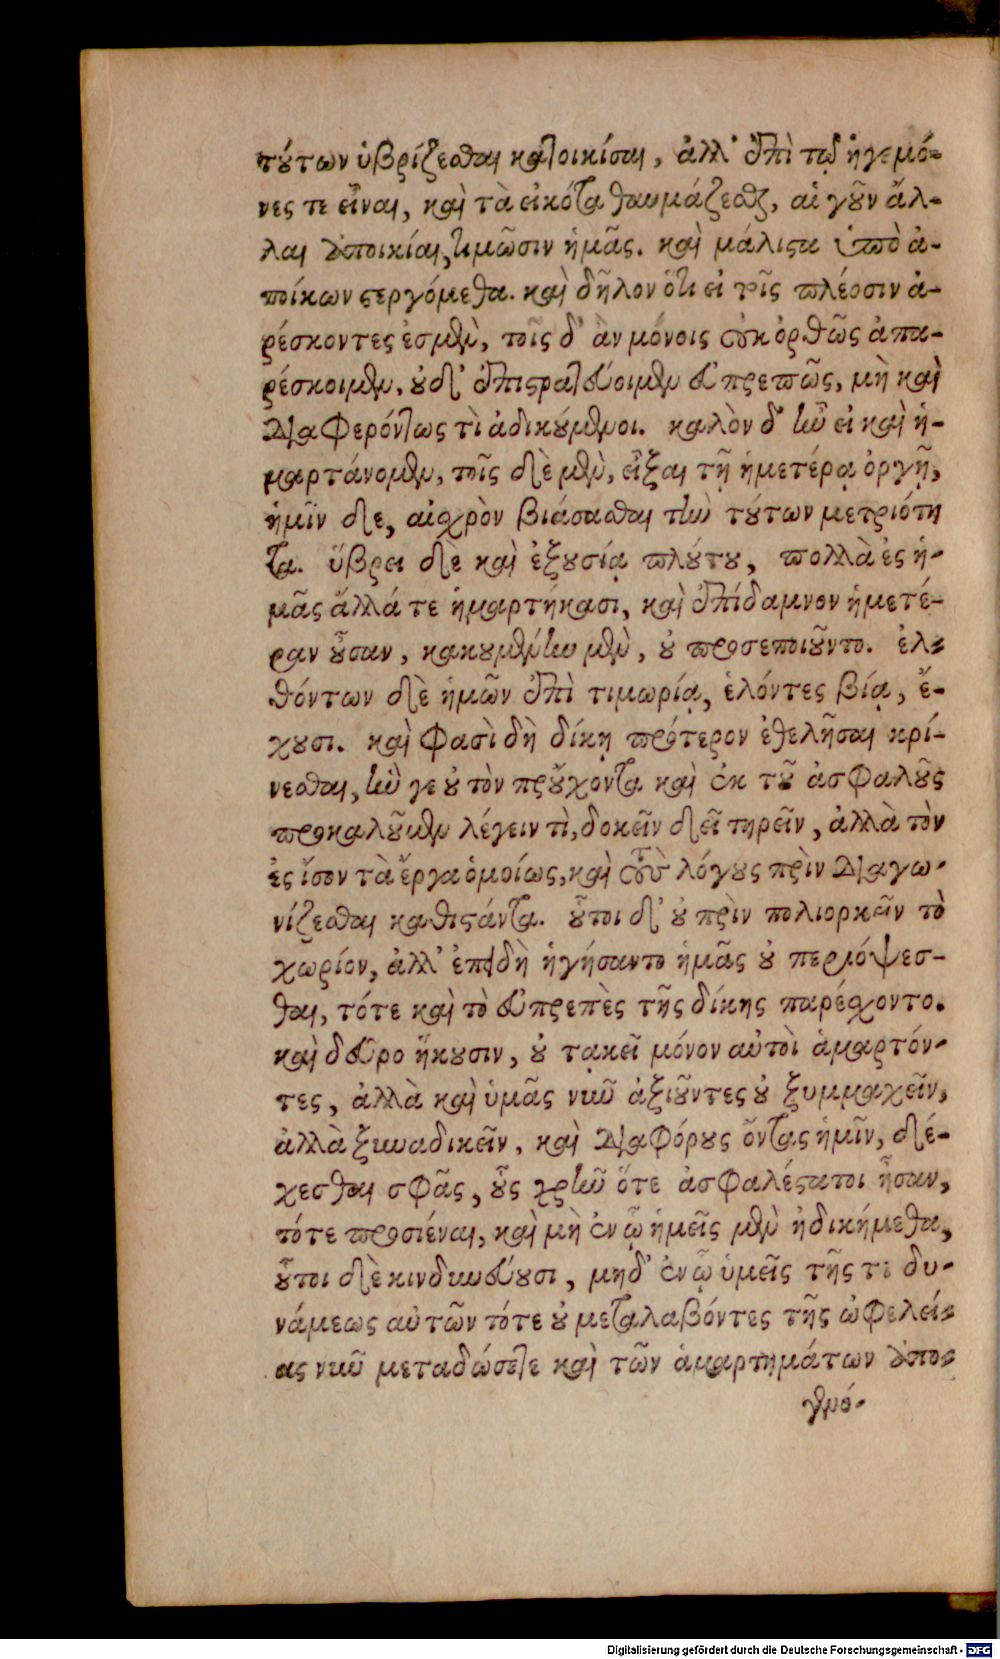 τύτων ὑβρίζεσθαι κατοικίσαι, ἀλλ' ἐπὶ τῷ ἡγεμό-
νες τε εἶναι, καὶ τὰ εἰκότα θαυμάζεσθαι, αἱ γοῦν ἄλ-
λαι ἀποικίαι, τιμῶσιν ἡμᾶς. καὶ μάλιστα ὑπὸ ἀ-
ποίκων στεργόμεθα. καὶ δῆλον ὅτι εἰ τοῖς πλέοσιν ἀ-
ρέσκοντες ἐσμὲν, τοῖς δ' ἂν μόνοις οὐκ ὀρθῶς ἀπα-
ρέσκοιμεν, οὐδ' ἐπιστρατεύοιμεν εὐπρεπῶς, μὴ καὶ
διαφερόντως τὶ ἀδικούμενοι. καλὸν δ' ἦν εἰ καὶ ἡ-
μαρτάνομεν, τοῖς δὲ μὲν, εἶξαι τῇ ἡμετέρᾳ ὀργῇ,
ἡμῖν δε, αἰσχρὸν βιάσασθαι τὴν τούτων μετριότη
τα. ὕβρει δὲ καὶ ἐξουσίᾳ πλούτου, πολλὰ ἐς ἡ-
μᾶς ἄλλά τε ἡμαρτήκασι, καὶ ἐπίδαμνον ἡμετέ-
ραν οὖσαν, κακουμένην μὲν, οὐ προσεποιοῦντο. ἐλ-
θόντων δὲ ἡμῶν ἐπὶ τιμωρίᾳ, ἑλόντες βίᾳ, ἔ-
χουσι. καὶ φασὶ δὴ δίκῃ πρότερον ἐθελῆσαι κρί-
νεσθαι, ἥν γε οὐ τὸν προὔχοντα καὶ ἐκ τοῦ ἀσφαλοῦς
προκαλούμενον λέγειν τὶ, δοκεῖν δεῖ τηρεῖν, ἀλλὰ τὸν
ἐς ἴσον τὰ ἔργα ὁμοίως, καὶ τοὺς λόγους πρὶν διαγω-
νίζεσθαι καθιστάντα. οὗτοι δ' οὐ πρὶν πολιορκεῖν τὸ
χωρίον, ἀλλ' ἐπειδὴ ἡγήσαντο ἡμᾶς οὐ περιόψεσ-
θαι, τότε καὶ τὸ εὐπρεπὲς τῆς δίκης παρέσχοντο.
καὶ δεῦρο ἥκουσιν, οὐ τἀκεῖ μόνον αὐτοὶ ἁμαρτόν-
τες, ἀλλὰ καὶ ὑμᾶς νῦν ἀξιοῦντες οὐ ξυμμαχεῖν,
ἀλλὰ ξυναδικεῖν, καὶ διαφόρους ὄντας ἡμῖν, δέ-
χεσθαι σφᾶς, οὓς χρῆν ὅτε ἀσφαλέστατοι ἦσαν,
τότε προσιέναι, καὶ μὴ ἐν ᾧ ἡμεῖς μὲν ἠδικήμεθα,
οὗτοι δὲ κινδυνεύουσι, μηδ' ἐν ᾧ ὑμεῖς τῆς τε δυ-
νάμεως αὐτῶν τότε οὐ μεταλαβόντες τῆς ὠφελεί-
ας νῦν μεταδώσετε καὶ τῶν ἁμαρτημάτων ἀπο-
γενό-
Digitalisierung gefördert durch die Deutsche Forschungsgemeinschaft - DFG